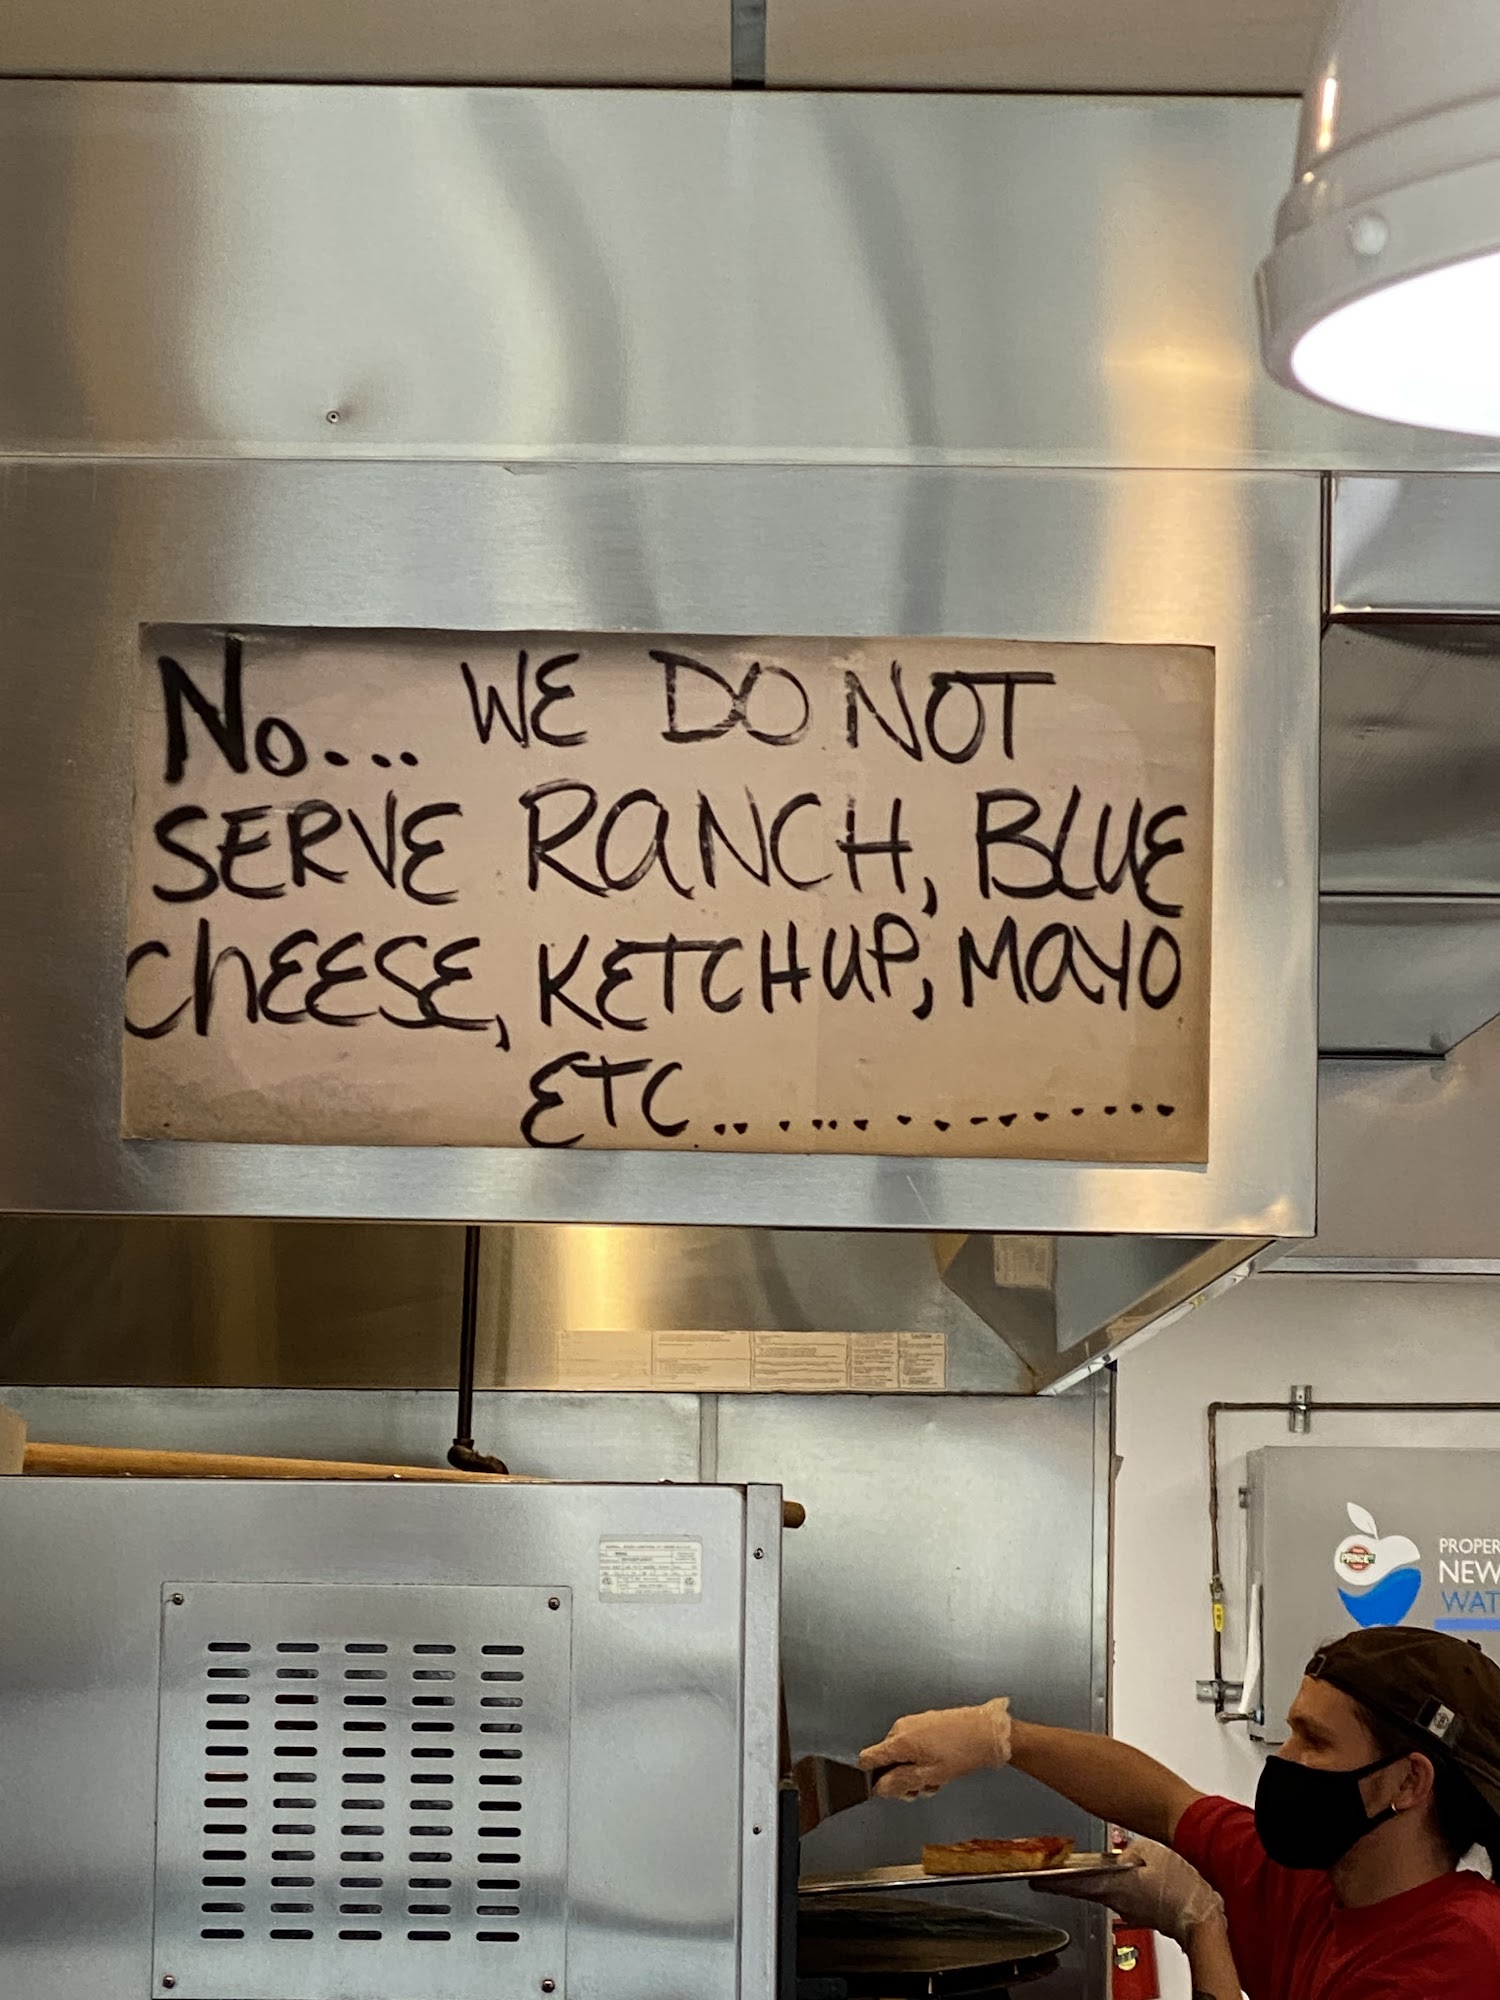 No... WE DO NOT
SERVE RANCH, BLUE
CHEESE, KETCHUP, MAYO
ETC....................
CAUTION
PRINCE
PROPER
NEW
WAT